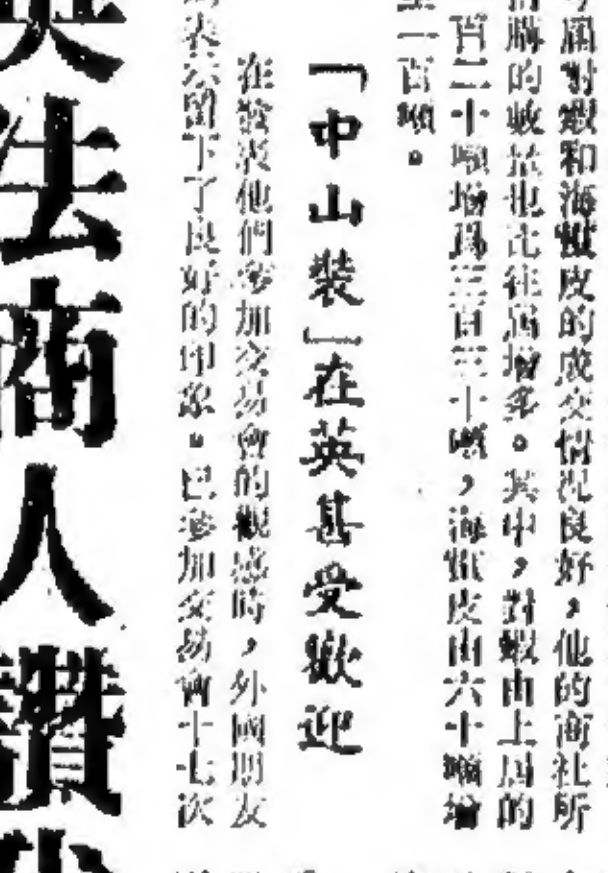 屆對蝦和海蜇皮的成交情況良好，他的商社所
購的數量也比往屆增多。其中，對蝦由上屆的
百二十噸增爲三百三十噸，海蜇皮由六十噸增
一百噸。
「中山裝」在英甚受歡迎
在發表他們參加交易會的觀感時，外國朋友
表示留下了良好的印象。已參加交易會十七次
英法商人讚